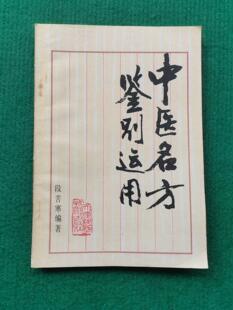 中医名方
鉴别运用
段苦寒编著